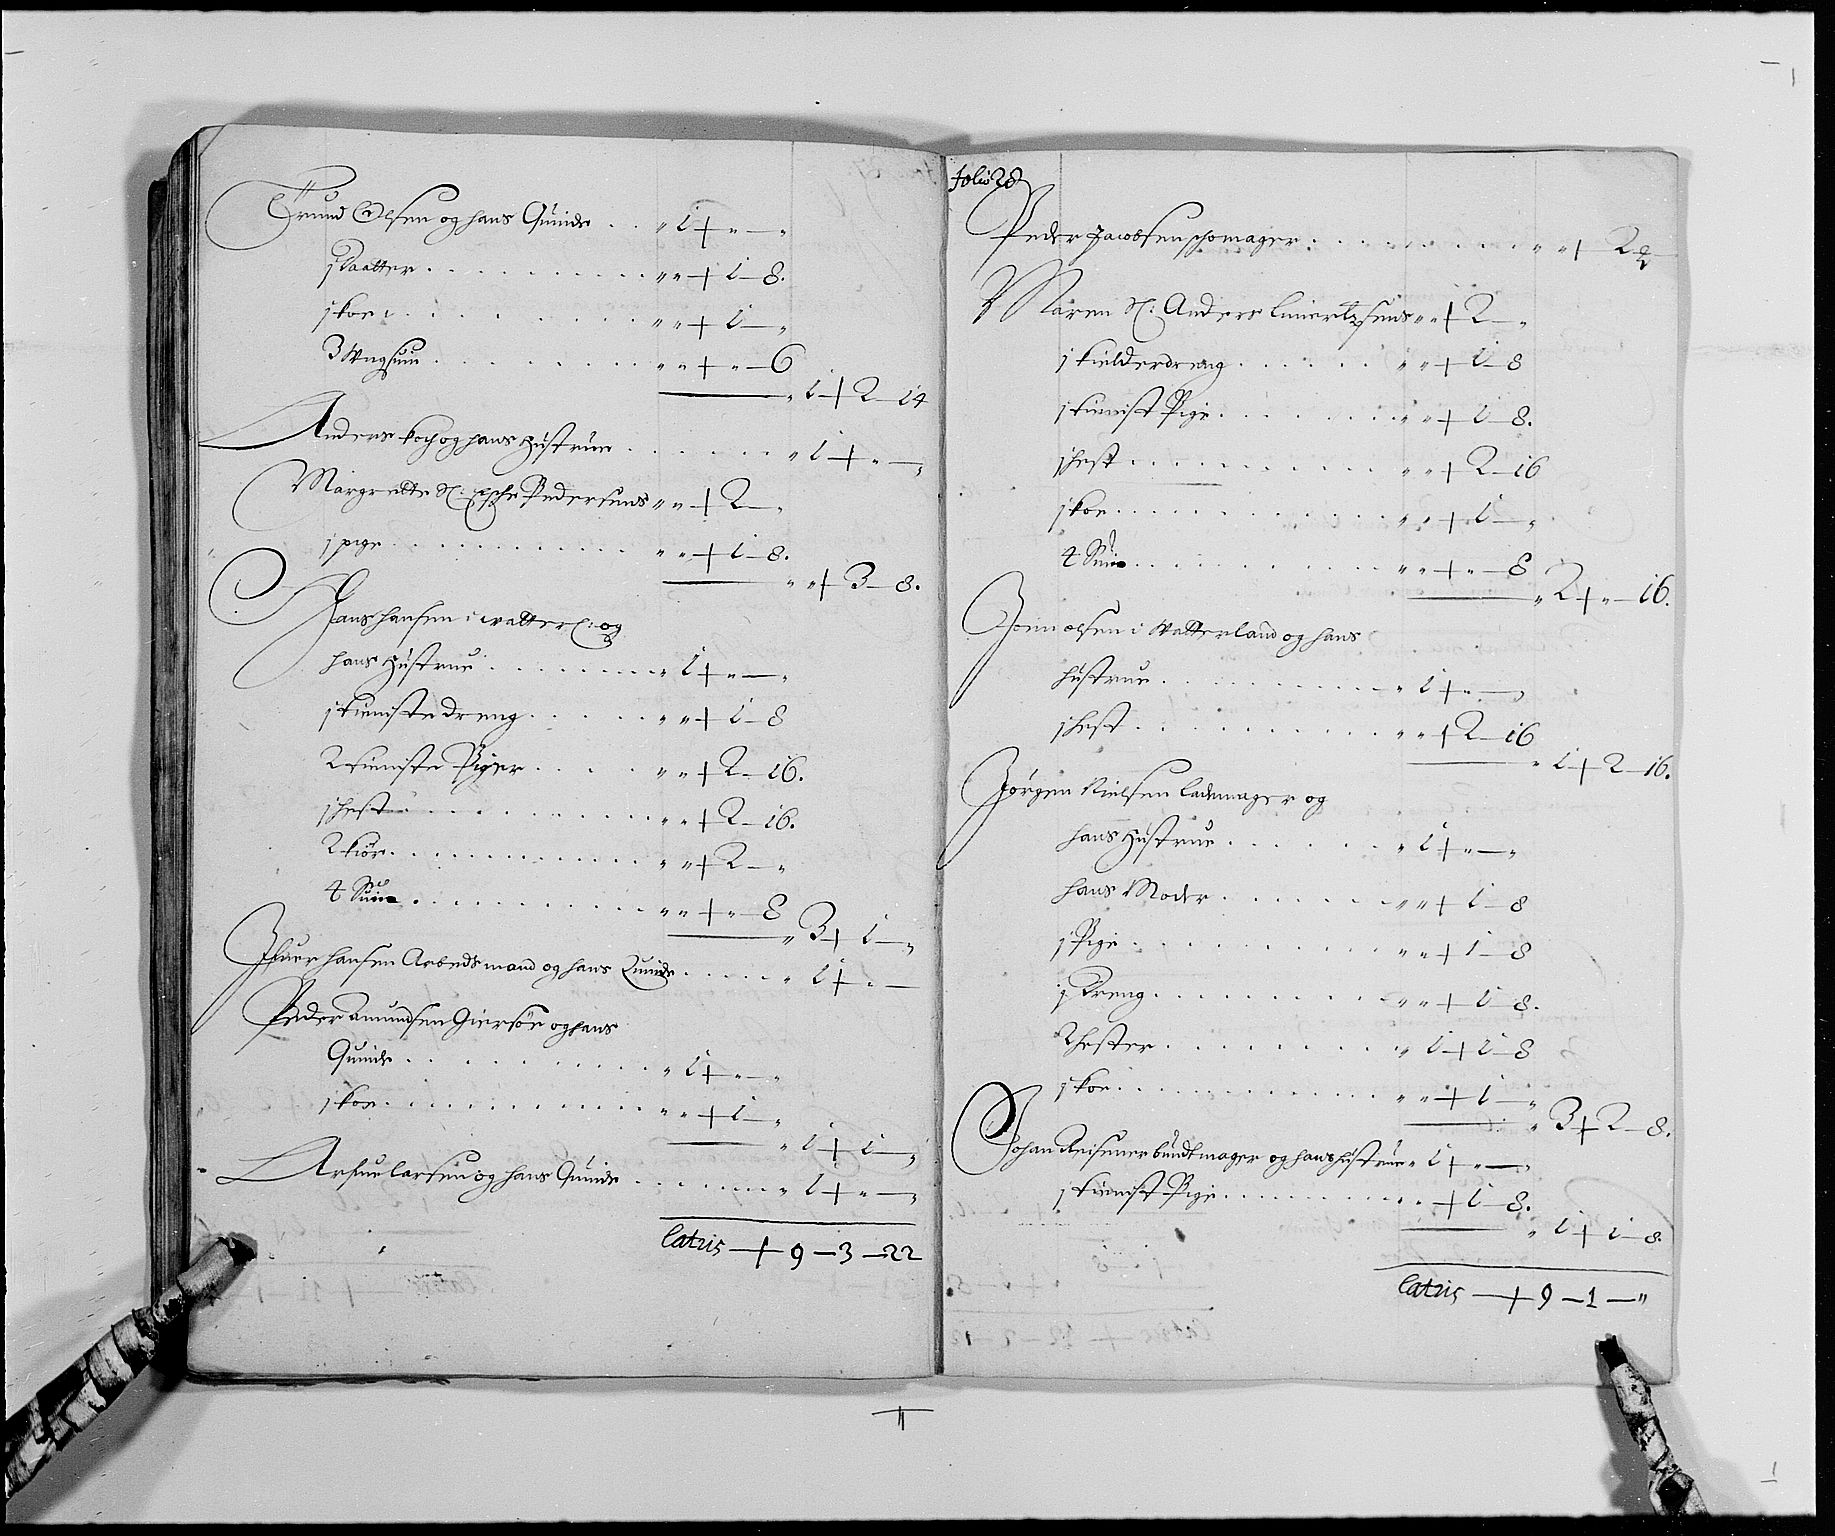 Trund Olsen og hans Quinde . . „ 1 + „ — „
j daatter . . . „ „ + 1 — 8.
j koe . . . „ „ + 1 — „
3 Ungsuin . . . „ „ + „ — 6
„ 1 + 2 — 14
Anders Koch og hans Hustrue . . . „ 1 + „ — „
Margrette Sl: Pedersens „ „ + 2 — „
j pige . . . „ „ + 1 — 8.
„ „ + 3 — 8.
Hans Hansen i watterl: og
hans Hustrue . . . „ 1 + „ — „
j tieniste dreng . . . „ „ + 1 — 8
2 tieniste Piger . . . „ „ + 2 — 16.
j hest . . . „ „ + 2 — 16.
2 kiör . . . „ „ + 2 — „
4 Suin . . . „ „ + „ — 8
„ 3 + 1 — „
Ifuer Hansen Arbedsmand og hans Quinde . . . „ 1 + „ —
Peder Amundsen Giersöe og hans
Quinde . . . „ 1 + „ — „
j koe . . . „ „ + 1 — „
„ 1 + 1 — „
Arfue Larsen og hans Quinde . . . „ 1 + „ — „
Latus — + 9 — 3 — 22
folio 28
Peder Jacobsen schomager . . . „ „ + 2 — „
Maren Sl: Anders Liuertzsens „ „ + 2 — „
j kielderdreng . . . „ „ + 1 — 8
j tienist Pige . . . „ „ + 1 — 8.
j hest . . . „ „ + 2 — 16
j koe . . . „ „ + 1 — „
4 Suin . . . „ „ + „ — 8
„ 2 + „ — 16.
Joen olsen i Watterland og hans
hustrue . . . „ 1 + „ — „
j hest . . . „ „ + 2 — 16
„ 1 + 2 — 16.
Jörgen Nielsen Lademager og
hans Hustrue . . . „ 1 + „ — „
hans Moder . . . „ „ + 1 — 8
j Pige . . . „ „ + 1 — 8
j Dreng . . . „ „ + 1 — 8.
2 hester . . . „ 1 + 1 — 8
j koe . . . „ „ + 1 — „
„ 3 + 2 — 8.
Johan Reisener bundtmager og hans hustrue „ 1 + „ — „
j tienist Pige . . . „ „ + 1 — 8.
„ 1 + 1 — 8.
Latus — + 9 — 1 — „